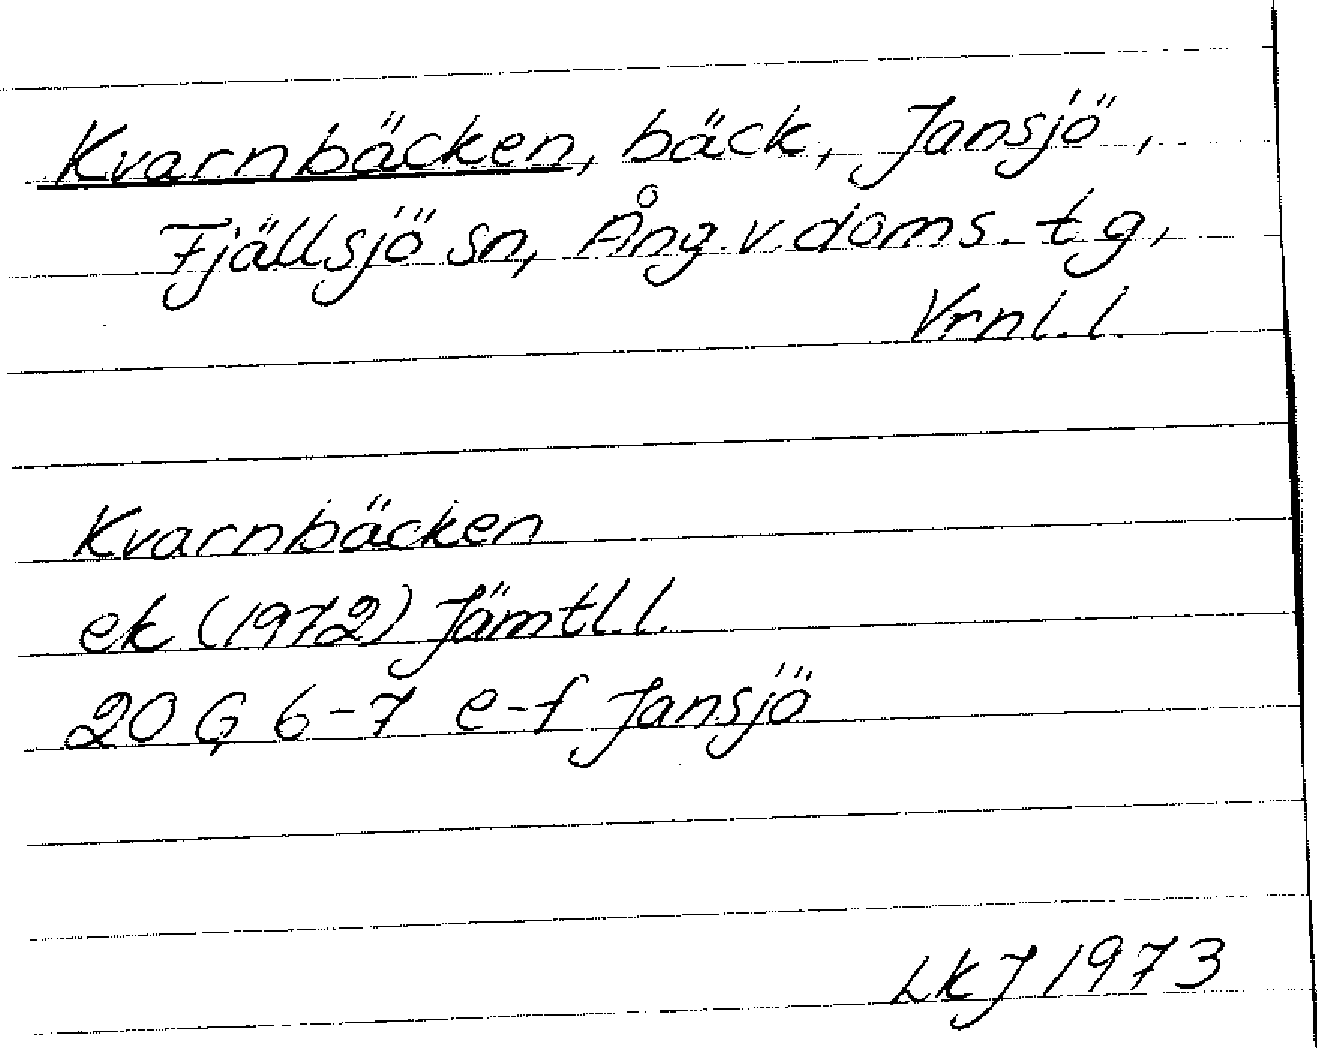 Kvarnbäcken, bäck, Jansjö,
Fjällsjö sn, Ång. v. doms. t g,
Vrnl. l.
Kvarnbäcken
ek (1972) Jämtl. l.
20 G 6-7 e-f Jansjö
LKJ 1973